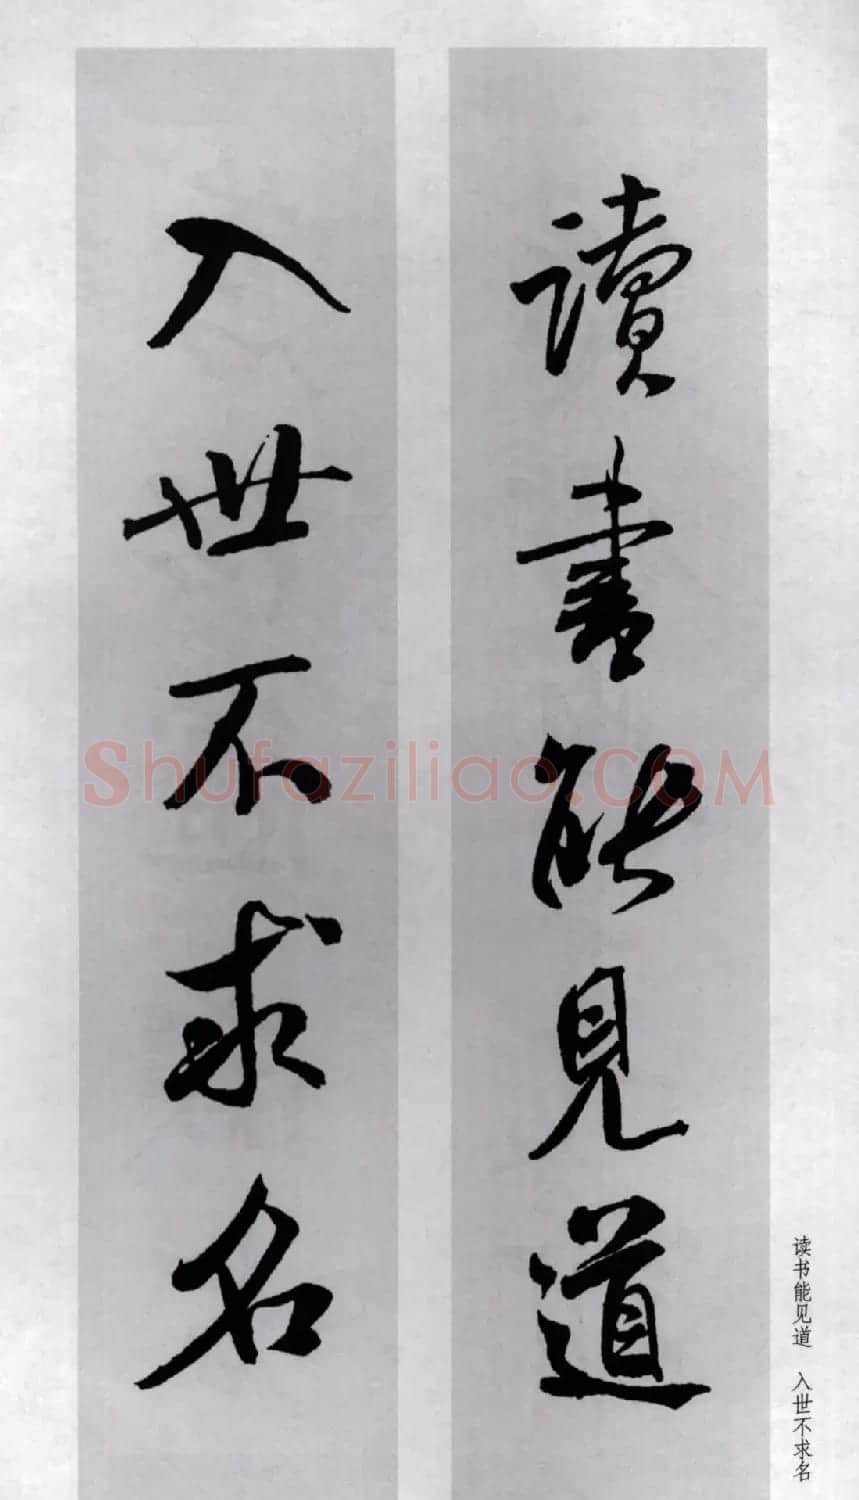 讀書能見道
入世不求名
读书能见道 入世不求名
Shufaziliao.COM